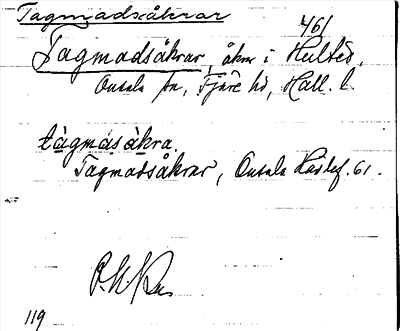 Tagmadsåkrar
461
Tagmadsåkrar, åkrar i Hulted,
Onsala sn, Fjäre hd, Hall. l.
tàgmásàkra.
Tagmadsåkrar, Onsala Husbef. 61.
119